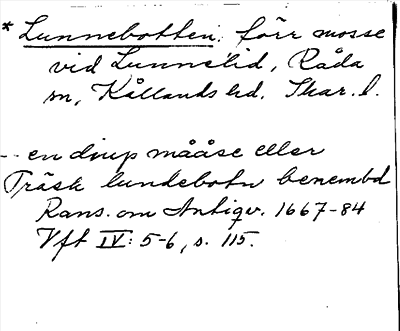 * Lunnebotten, förr mosse
vid Lunnelid, Råda
sn, Kållands hd. Skar. l.
-- en diup mååse eller
Träsk lundebotn benembd
Rans. om Antiqv. 1667-84
Vft IV: 5-6, s. 115.